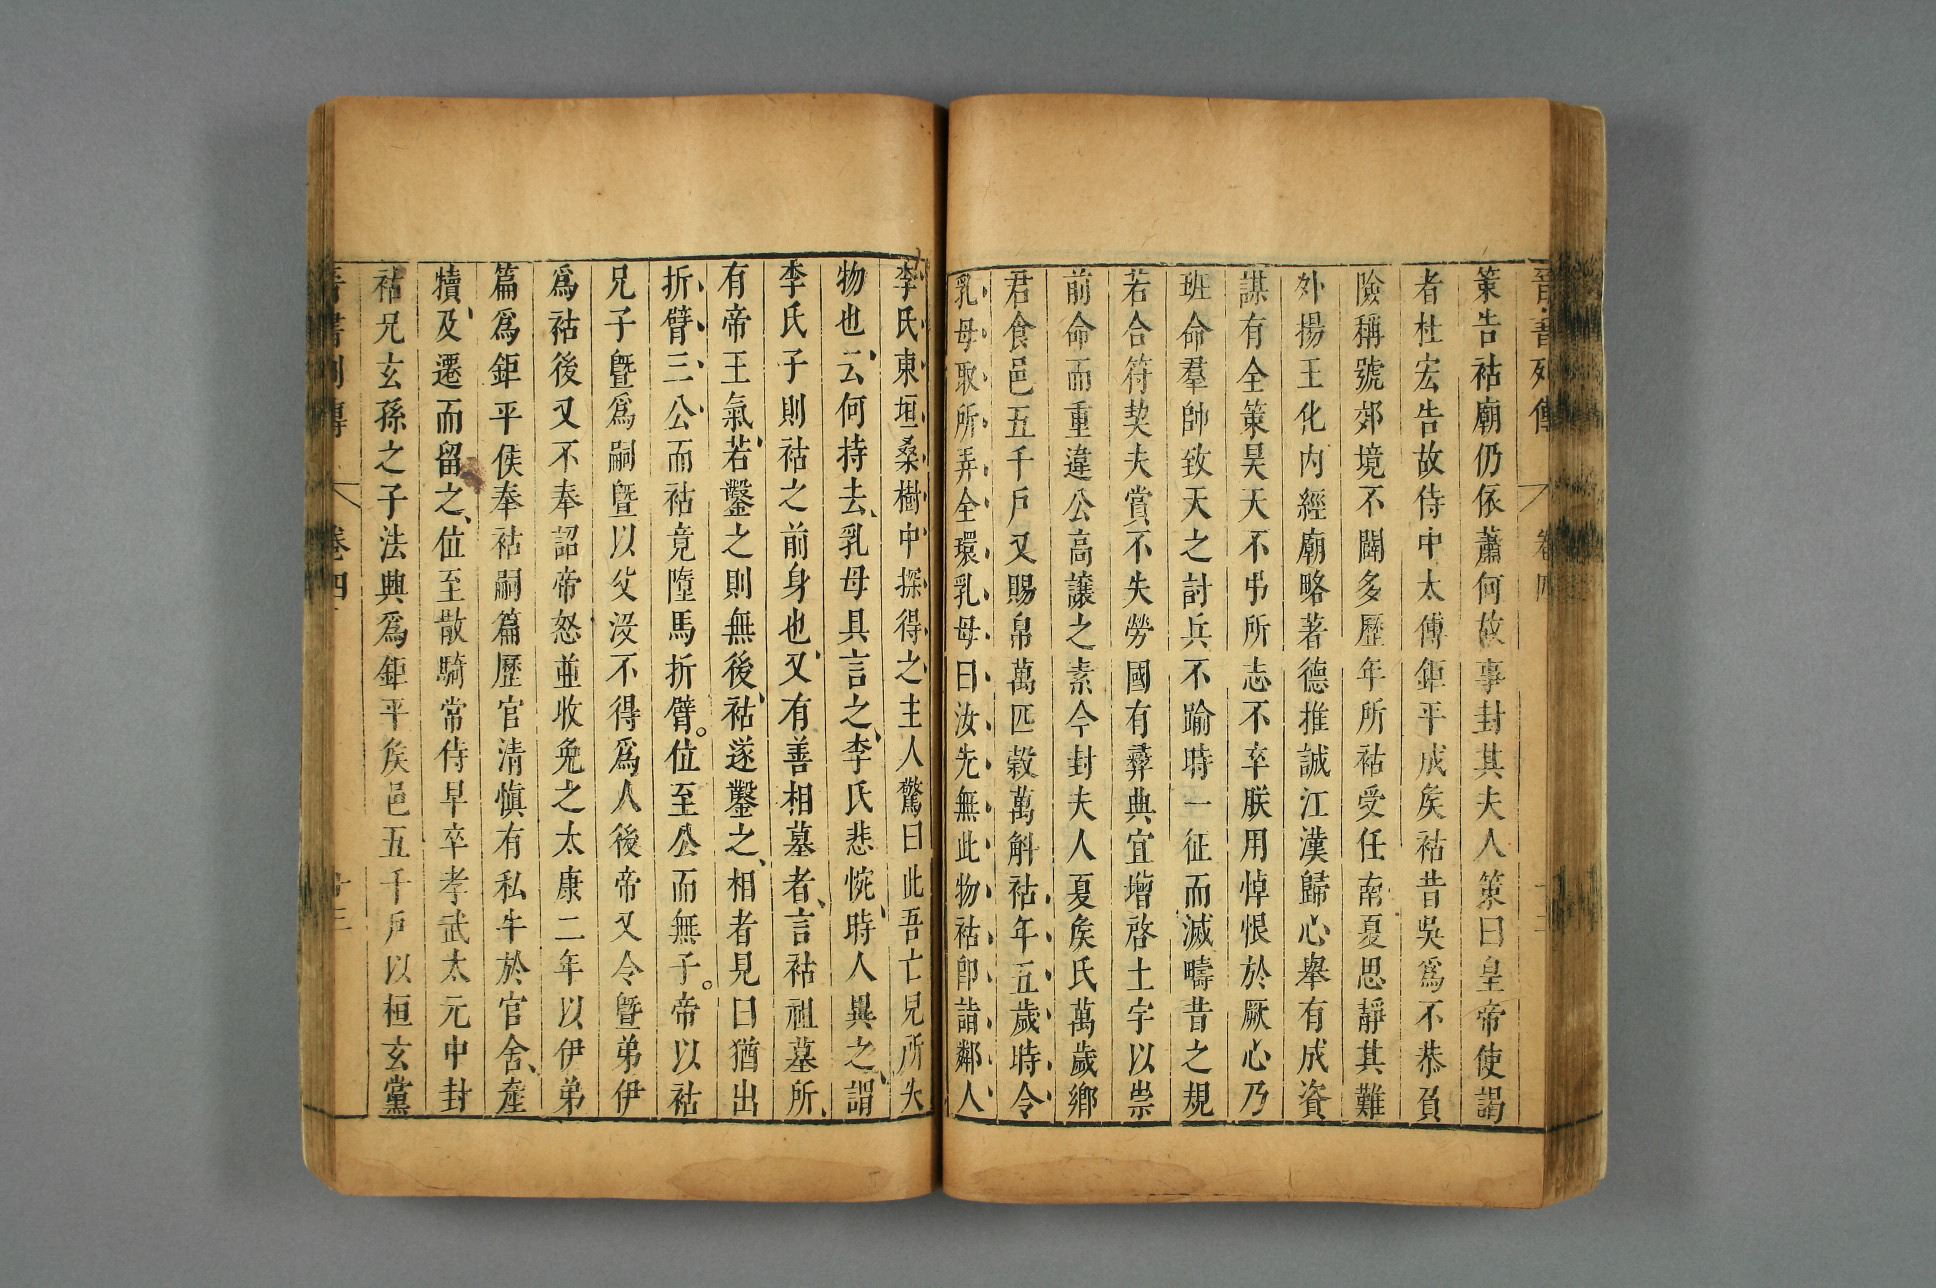 晉書列傳 卷四 十三
策告祜廟仍依蕭何故事封其夫人策曰皇帝使謁
者杜宏告故侍中太傅鉅平成矦祜昔吳爲不恭負
險稱號郊境不闢多歷年所祜受任南夏思靜其難
外揚王化內經廟略著德推誠江漢歸心舉有成資
謀有全策昊天不弔所志不卒朕用悼恨於厥心乃
班命羣帥致天之討兵不踰時一征而滅疇昔之規
若合符契夫賞不失勞國有彝典宜增啓土宇以崇
前命而重違公高讓之素今封夫人夏矦氏萬歲鄉
君食邑五千戶又賜帛萬匹穀萬斛祜年五歲時令
乳母取所弄金環乳母曰汝先無此物祜卽詣鄰人
李氏東垣桑樹中探得之主人驚曰此吾亡兒所失
物也、云何持去、乳母具言之、李氏悲惋、時人異之、謂
李氏子則祜之前身也、又有善相墓者、言祜祖墓所、
有帝王氣、若鑿之則無後、祜遂鑿之、相者見曰猶出
折臂三公而祜竟墮馬折臂。位至公而無子。帝以祜
兄子曁爲嗣曁以父沒不得爲人後帝又令曁弟伊
爲祜後又不奉詔帝怒並收免之太康二年以伊弟
篇爲鉅平侯奉祜嗣篇歷官清愼有私牛於官舍、產
犢、及遷而留之、位至散騎常侍早卒孝武太元中封
祜兄玄孫之子法興爲鉅平矦邑五千戶以桓玄黨
晉書列傳 卷四 十三